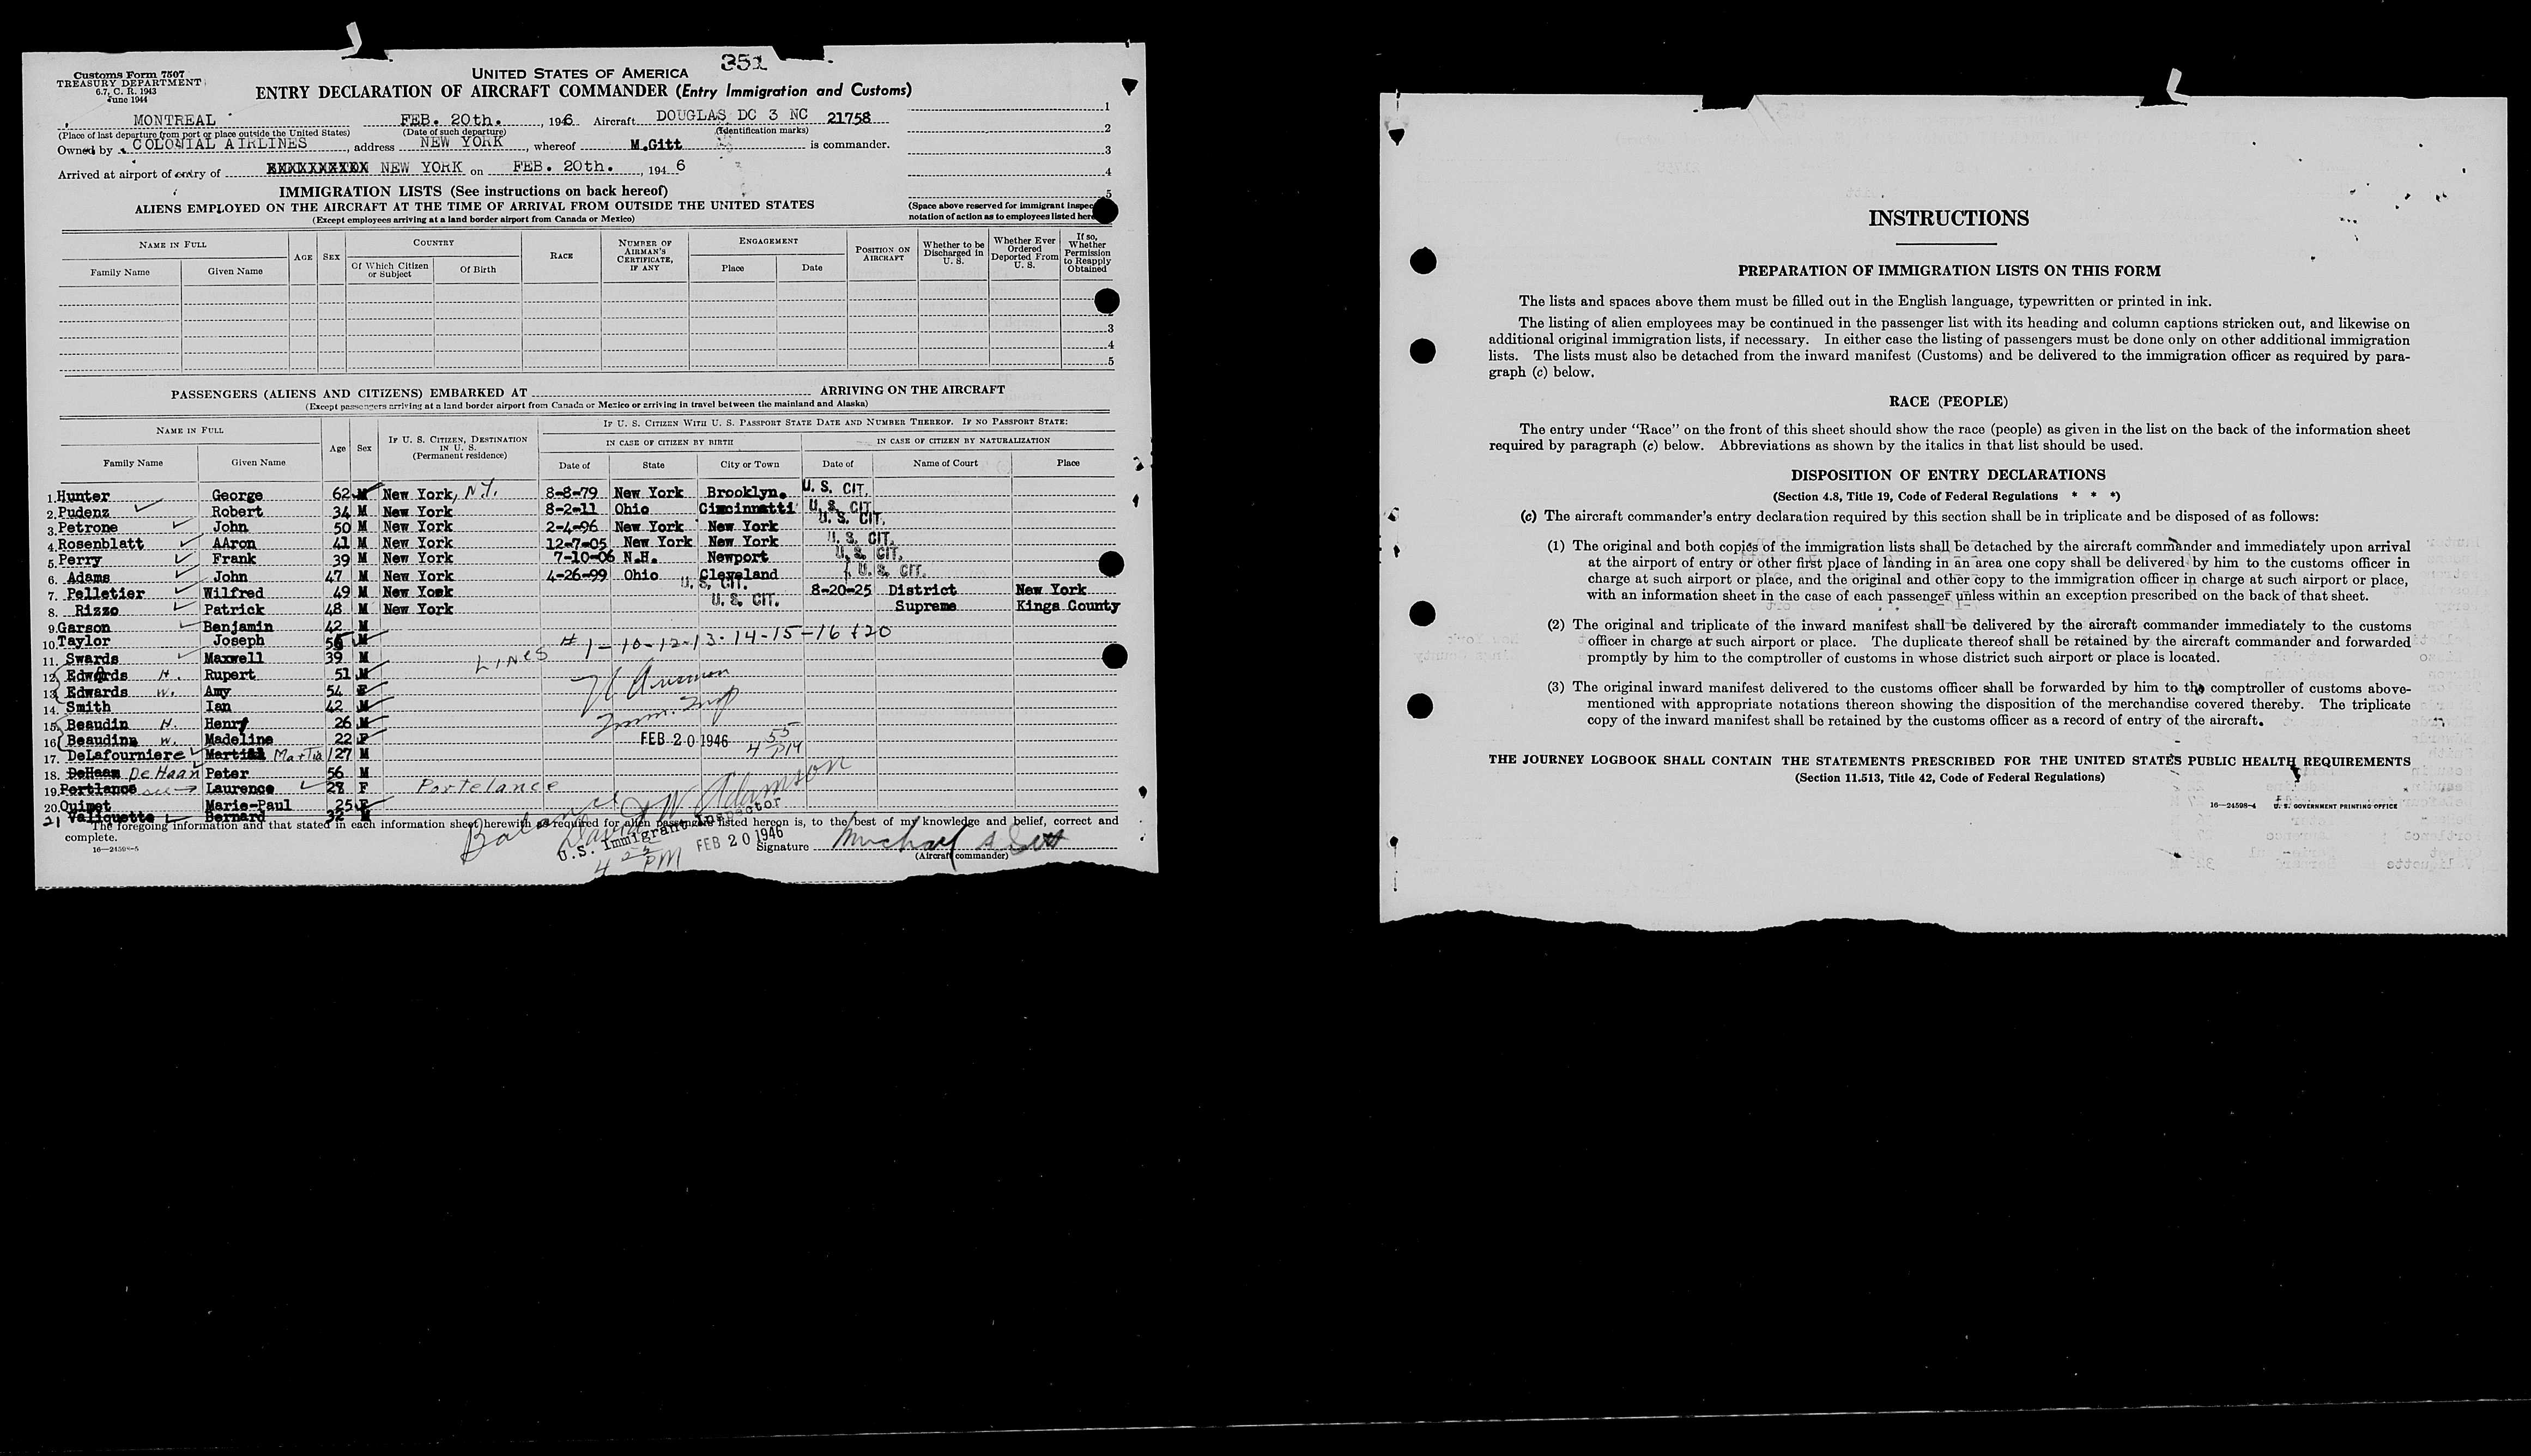 351
Customs Form 7507
TREASURY DEPARTMENT
6.7, C. R. 1943
June 1944
UNITED STATES OF AMERICA
ENTRY DECLARATION OF AIRCRAFT COMMANDER (Entry Immigration and Customs)
MONTREAL FEB. 20th. , 1946 Aircraft DOUGLAS DC 3 NC 21758
(Place of last departure from port or place outside the United States) (Date of such departure) (Identification marks)
Owned by COLONIAL AIRLINES , address NEW YORK , whereof M.Gitt is commander.
Arrived at airport of entry of NEW YORK on FEB. 20th. , 194 6
1
2
3
4
5
IMMIGRATION LISTS (See instructions on back hereof)
ALIENS EMPLOYED ON THE AIRCRAFT AT THE TIME OF ARRIVAL FROM OUTSIDE THE UNITED STATES
(Except employees arriving at a land border airport from Canada or Mexico)
(Space above reserved for immigrant inspec
notation of action as to employees listed here
NAME IN FULL AGE SEX COUNTRY RACE NUMBER OF AIRMAN'S CERTIFICATE, IF ANY ENGAGEMENT POSITION ON AIRCRAFT Whether to be Discharged in U. S. Whether Ever Ordered Deported From U. S. If so, Whether Permission to Reapply Obtained
Family Name Given Name Of Which Citizen or Subject Of Birth Place Date
3
4
5
PASSENGERS (ALIENS AND CITIZENS) EMBARKED AT ARRIVING ON THE AIRCRAFT
(Except passengers arriving at a land border airport from Canada or Mexico or arriving in travel between the mainland and Alaska)
NAME IN FULL Age Sex IF U. S. CITIZEN, DESTINATION IN U. S. (Permanent residence) IF U. S. CITIZEN WITH U. S. PASSPORT STATE DATE AND NUMBER THEREOF. IF NO PASSPORT STATE:
IN CASE OF CITIZEN BY BIRTH IN CASE OF CITIZEN BY NATURALIZATION
Family Name Given Name Date of State City or Town Date of Name of Court Place
1. Hunter George 62 M New York, N.Y. 8-8-79 New York Brooklyn. U. S. CIT.
2. Pudenz Robert 34 M New York 8-2-11 Ohio Cincinnatti U. S. CIT.
3. Petrone John 50 M New York 2-4-96 New York New York U. S. CIT.
4. Rosenblatt AAron 41 M New York 12-7-05 New York New York U. S. CIT.
5. Perry Frank 39 M New York 7-10-06 N.H. Newport U. S. CIT.
6. Adams John 47 M New York 4-26-99 Ohio Cleveland U. S. CIT.
7. Pelletier Wilfred 49 M New York U. S. CIT. 8-20-25 District New York
8. Rizzo Patrick 48 M New York U. S. CIT. Supreme Kings County
9. Garson Benjamin 42 M
10. Taylor Joseph 56 M
11. Swards Maxwell 39 M LINES # 1-10-12-13-14-15-16 & 20
12. Edwards H. Rupert 51 M
13. Edwards W. Amy 54 F
14. Smith Ian 42 M Imm. Insp
15. Beaudin H. Henry 26 M
16. Beaudinn W. Madeline 22 F FEB 20 1946 4 55 PM
17. DeLafourniere Martial Martial 27 M
18. DeHaan DeHaan Peter 56 M
19. Portlance Laurence 28 F Portelance
20. Quimet Marie-Paul 25 F
21 Valiquette Bernard 32 M
The foregoing information and that stated in each information sheet herewith as required for alien passengers listed hereon is, to the best of my knowledge and belief, correct and
complete.
Balance David W Adamson
U.S. Immigrant Inspector
FEB 20 1946
Signature Michael A Gitt
(Aircraft commander)
16-24598-5
INSTRUCTIONS
PREPARATION OF IMMIGRATION LISTS ON THIS FORM
The lists and spaces above them must be filled out in the English language, typewritten or printed in ink.
The listing of alien employees may be continued in the passenger list with its heading and column captions stricken out, and likewise on
additional original immigration lists, if necessary. In either case the listing of passengers must be done only on other additional immigration
lists. The lists must also be detached from the inward manifest (Customs) and be delivered to the immigration officer as required by para-
graph (c) below.
RACE (PEOPLE)
The entry under "Race" on the front of this sheet should show the race (people) as given in the list on the back of the information sheet
required by paragraph (c) below. Abbreviations as shown by the italics in that list should be used.
DISPOSITION OF ENTRY DECLARATIONS
(Section 4.8, Title 19, Code of Federal Regulations * * *)
(c) The aircraft commander's entry declaration required by this section shall be in triplicate and be disposed of as follows:
(1) The original and both copies of the immigration lists shall be detached by the aircraft commander and immediately upon arrival
at the airport of entry or other first place of landing in an area one copy shall be delivered by him to the customs officer in
charge at such airport or place, and the original and other copy to the immigration officer in charge at such airport or place,
with an information sheet in the case of each passenger unless within an exception prescribed on the back of that sheet.
(2) The original and triplicate of the inward manifest shall be delivered by the aircraft commander immediately to the customs
officer in charge at such airport or place. The duplicate thereof shall be retained by the aircraft commander and forwarded
promptly by him to the comptroller of customs in whose district such airport or place is located.
(3) The original inward manifest delivered to the customs officer shall be forwarded by him to the comptroller of customs above-
mentioned with appropriate notations thereon showing the disposition of the merchandise covered thereby. The triplicate
copy of the inward manifest shall be retained by the customs officer as a record of entry of the aircraft.
THE JOURNEY LOGBOOK SHALL CONTAIN THE STATEMENTS PRESCRIBED FOR THE UNITED STATES PUBLIC HEALTH REQUIREMENTS
(Section 11.513, Title 42, Code of Federal Regulations)
16-24598-4 U. S. GOVERNMENT PRINTING OFFICE